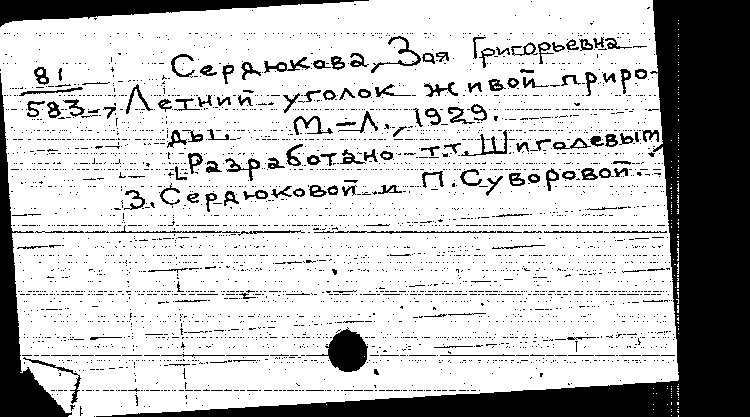 81
583-7
Сердюкова, Зоя Григорьевна
Летний уголок живой приро-
ды. М.-Л., 1929.
[Разработано т.т. Шиголевым,
З. Сердюковой и П. Суворовой.